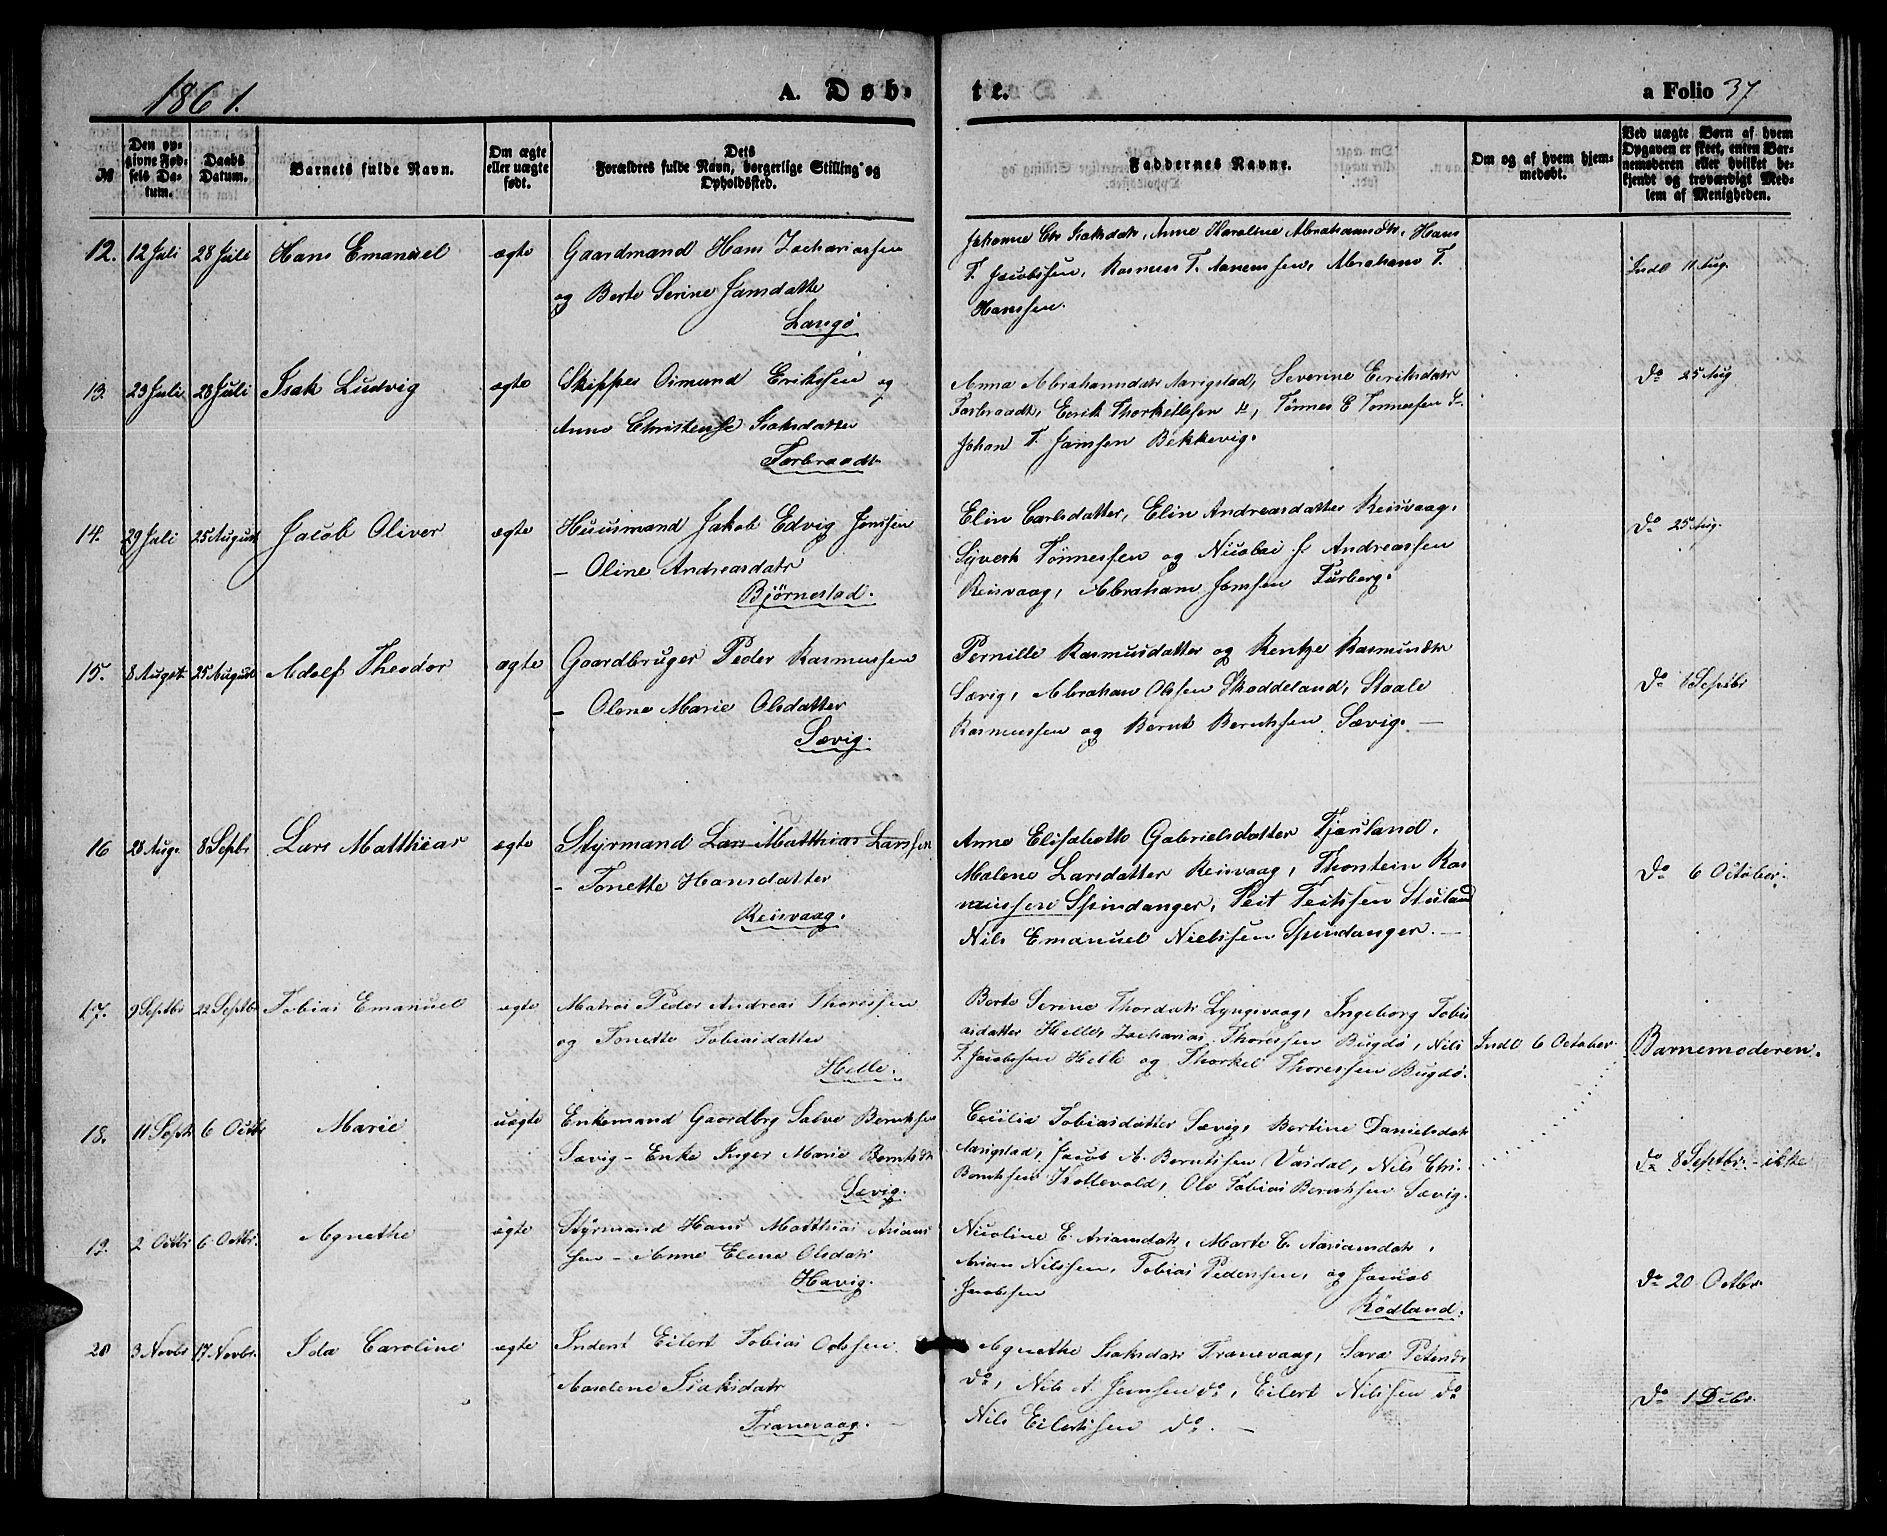 1861.
A. Døb-
te.
a Folio 37
№
Den op-
givne Fød-
sels Da-
tum.
Daabs
Datum.
Barnets fulde Navn.
Om ægte
eller uægte
født.
Dets
Forældres fulde Navn, borgerlige Stilling og
Opholdssted.
Faddernes Navne.
Om og af hvem hjem-
medøbt.
Ved uægte Børn af hvem
Opgaven er skeet, enten Bar-
nemoderen eller hvilket be-
kjendt og troværdigt Med-
lem af Menigheden.
12. 12 Juli 28 Juli Hans Emanuel ægte Gaardmand Hans Zachariassen
og Berte Serine Jansdatte
Langø
Johanne Chr Isaksdatr, Anne Karoline Abrahamsdtr, Hans
T. Jacobsen, Rasmus T. Aanensen, Abraham T.
Hanssen.
Indl 11 Aug.
13. 23 Juli 28 Juli Isak Ludvig ægte Skipper Omund Erikssen og
Anne Christense Isaksdatter
Torbraadt
Anna Abrahamsdatr Aarigstad, Severine Eeriksdatr
Torbraadt, Eerik Thorkildsen, Tønnes E Tønnessen
Johan T. Janssen Bekkevig.
do 25 Aug
14. 29 Juli 25 August Jacob Oliver ægte Huusmand Jakob Edvig Jonssen
– Oline Andreasdatr
Bjørnestad.
Elin Carlsdatter, Elin Andreasdatter Reisvaag,
Syvert Tønnessen og Nicolai Andreassen
Reisvaag, Abraham Jonssen Furberg.
do 25 Aug.
15. 8 August 25 August Adolf Theodor ægte Gaardbruger Peder Rasmussen
– Olene Marie Olsdatter
Sævig.
Pernille Rasmusdatter og Rentze Rasmusdtr
Sævig, Abraham Olssen Skoddeland, Staale
Rasmussen og Bernt Berntssen Sævig. —
do 1 Septbr
16 28 Aug. 8 Septbr Lars Matthias ægte Styrmand Lars Matthias Larssen
– Tonette Hansdatter
Reisvaag.
Anne Elisabeth Gabrielsdatter Fjeuland,
Malene Larsdatter Reisvaag, Thorstein Ras
mussen Spindanger, Teit Teitssen Stuland
Nils Emanuel Nielssen Spindanger. —
do 6 October.
17. 9 Septbr 22 Septbr Tobias Emanuel ægte Matros Peder Andreas Thoressen
og Tonette Tobiasdatter
Helle.
Berte Serine Thordatr Lyngsvaag, Ingeborg Tobi
asdatter Helle, Zacharias Thoressen Bugdø, Nils
T. Jacobssen Helle og Thorkel Thoressen Bugdø.
Indl 6 October.
Barnemoderen.
18. 11 Sept 6 Octbr Marie uægte Enkemand Gaardbrg Salve Berntssen
Sævig – Enke Inger Marie Berntsdtr
Sævig.
Cecilia Tobiasdatter Sævig, Bertine Danielsdatr
Aarigstad, Jacob A. Berntssen Vasdal, Nils Chr.
Berntssen Kollevold, Ole Tobias Berntssen Sævig.
do 8 Septbr. – ikke
19. 2 Octbr 6 Octbr. Agnethe ægte Styrmand Hans Matthias Arians
sen – Anne Elene Olsdatr
Havig.
Nicoline E. Ariansdatr, Marte C. Aariansdatr,
Arian Nilssen, Tobias Pederssen, og Jacob
Jacobssen
Rødland.
do 20 Octbr
20 3 Novbr 17 Novbr. Ida Caroline ægte Inderst Eilert Tobias Odssen
Aaselene Isaksdatr
Tranevaag. —
Agnethe Isaksdatr Tranevaag, Sara Petersdr
do, Nils A. Jenssen do, Eilert Nilssen do
Nils Eilertssen do. —
do 1 Decbr.